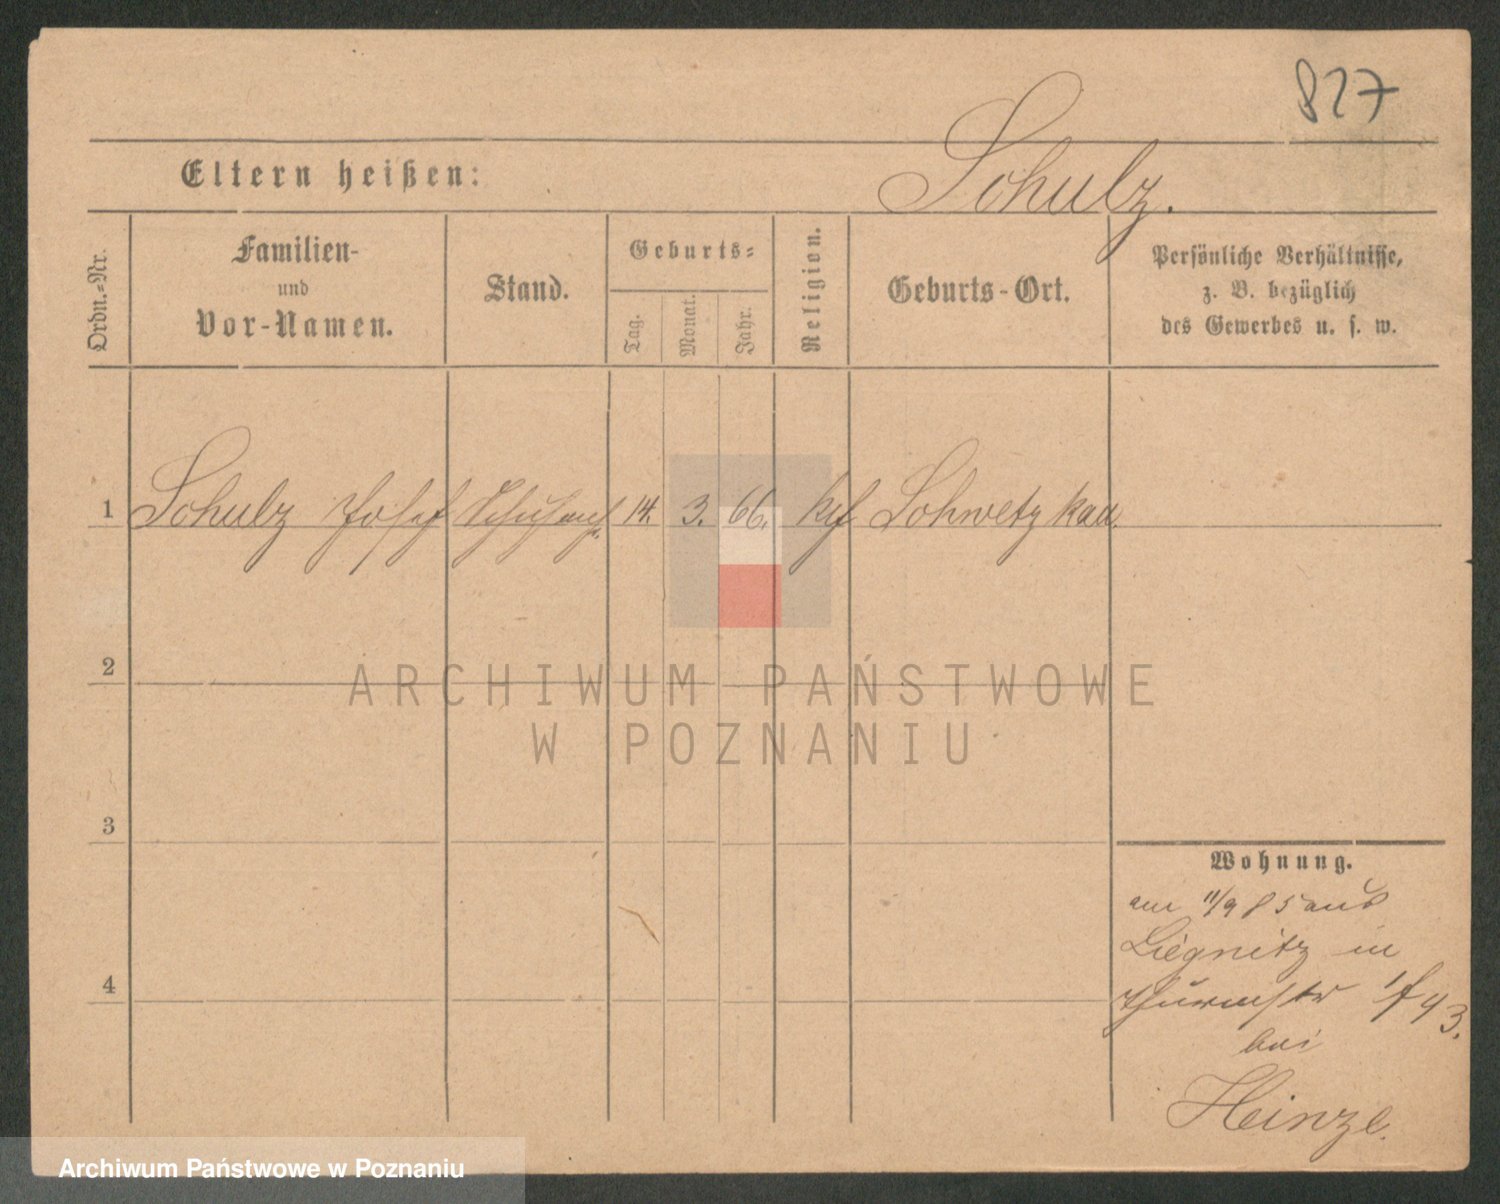 827
Schulz.
Eltern heißen:
Ordn.-Nr.
Familien-
und
Vor-Namen.
Stand.
Geburts-
Tag.
Monat.
Jahr.
Religion.
Geburts-Ort.
Persönliche Verhältnisse,
z. B. bezüglich
des Gewerbes u. s. w.
1 Schulz Josef 14. 3. 66. Schwetzkau
2
3
4
Wohnung.
am 11/9 85 aus
Liegnitz in
bei
Heinze.
ARCHIWUM PAŃSTWOWE
W POZNANIU
Archiwum Państwowe w Poznaniu